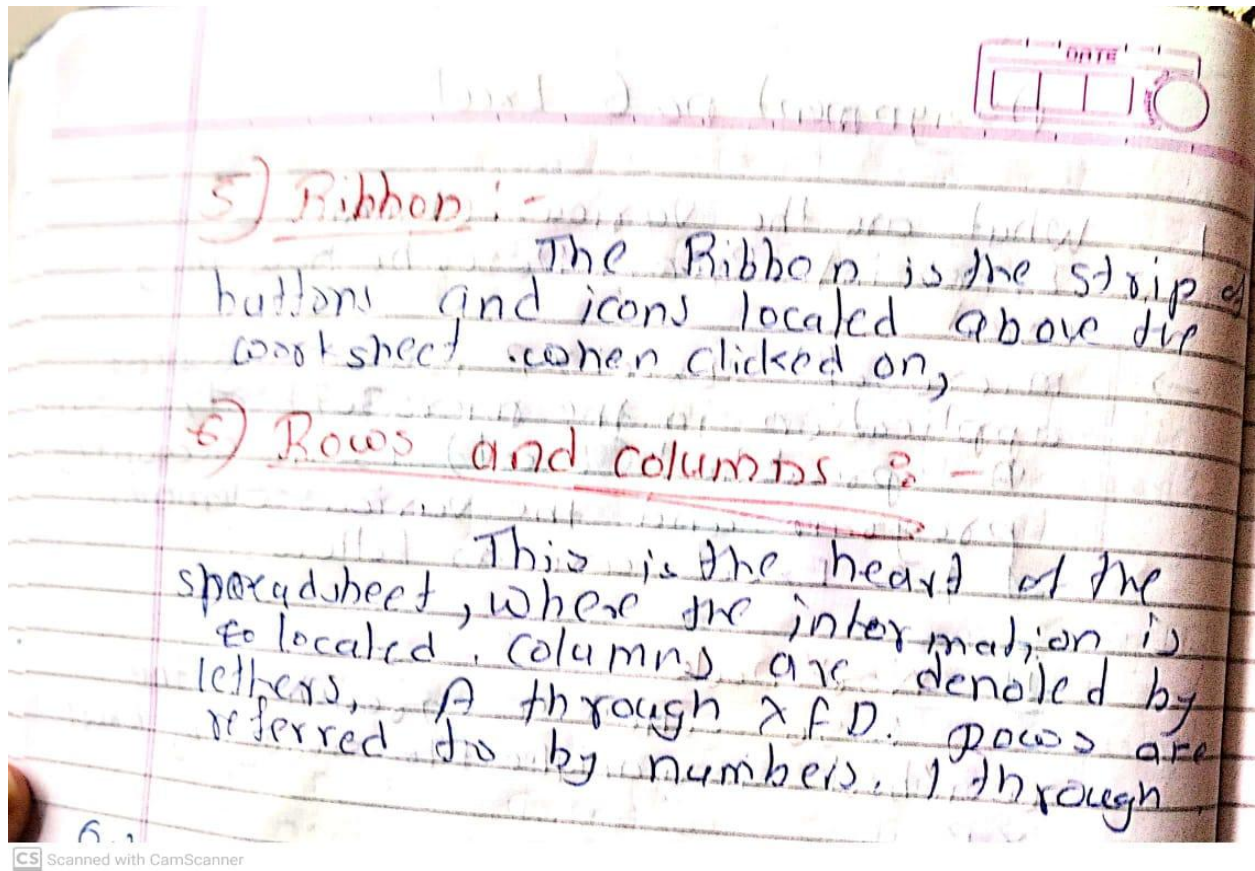 DATE
5) Ribbon :-
The Ribbon is the strip of
buttons and icons located above the
worksheet .when clicked on,
6) Rows and columns :-
This is the heart of the
sporeadsheet, where the intormation is
to located. Columns are denoted by
letters, A through XFD. Rows are
referred to by numbers. 1 through
CS Scanned with CamScanner